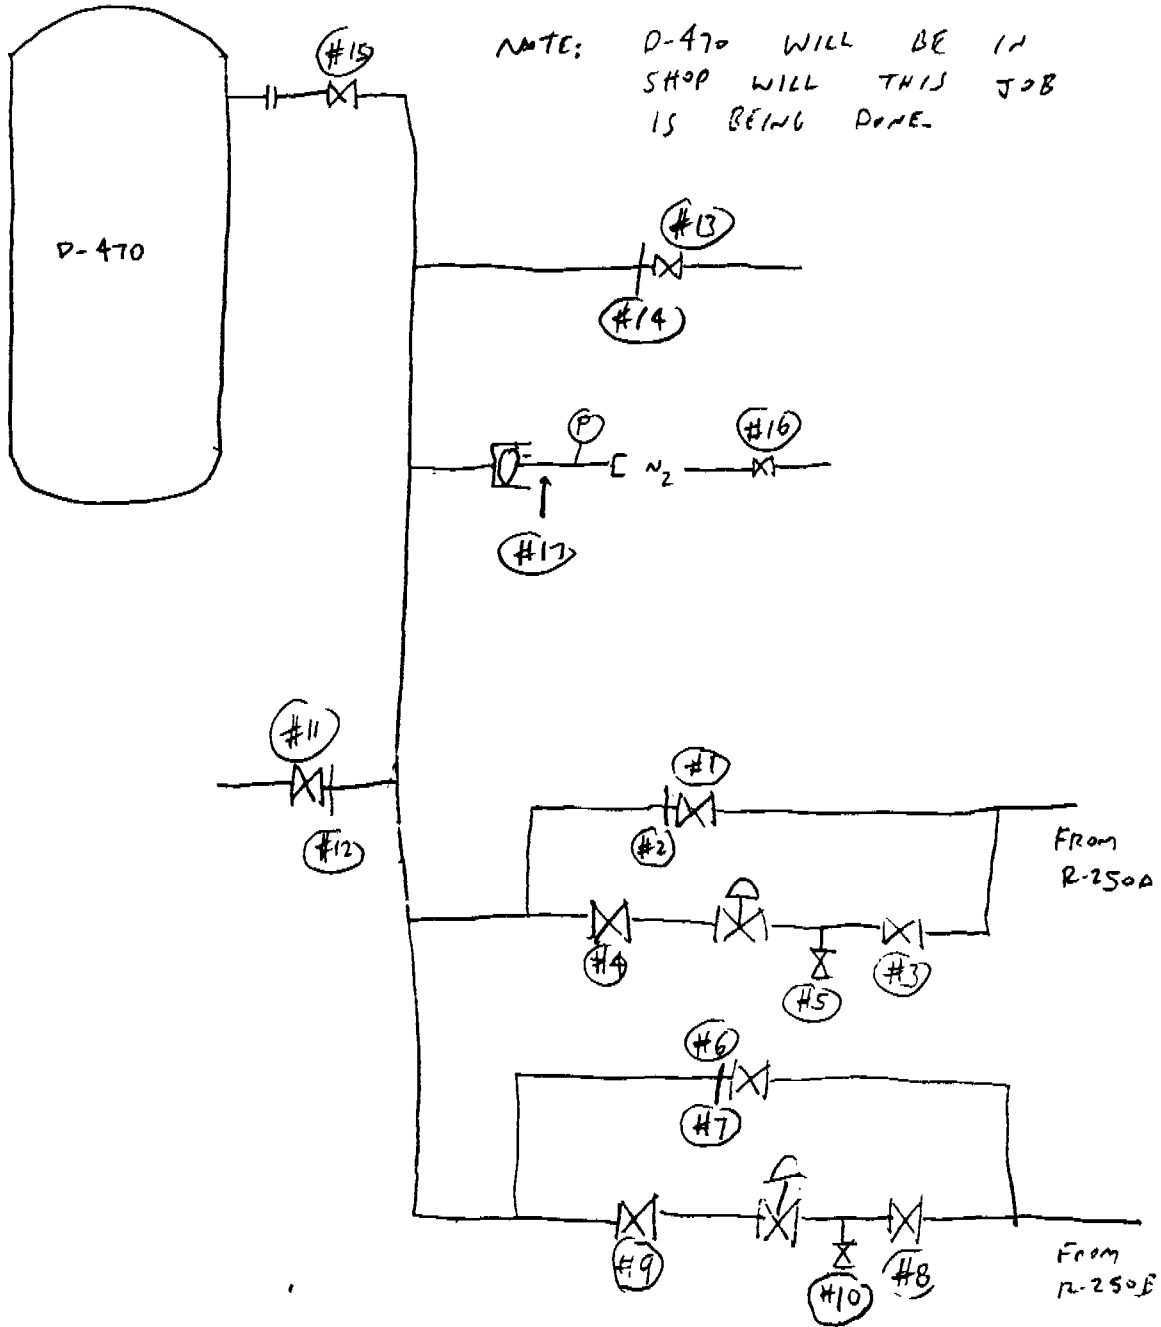 #15
NOTE: D-470 WILL BE IN
SHOP WILL THIS JOB
IS BEING DONE.
D-470
#13
#14
P
#16
N2
#17
#11
#12
#1
#2
FROM
R-250A
#4
#3
#5
#6
#7
#9
#8
#10
FROM
R-250E